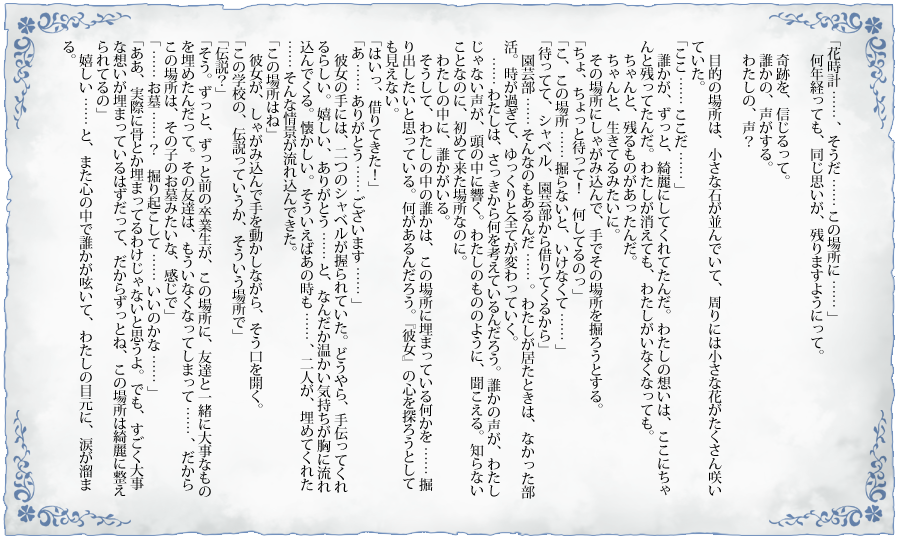 「花時計……そうだ……この場所に……」
何年経っても、同じ思いが、残りますようにって。
奇跡を、信じるって。
誰かの、声がする。
わたしの、声？
目的の場所は、小さな石が並んでいて、周りには小さな花がたくさん咲い
ていた。
「ここ……ここだ……」
誰かが、ずっと、綺麗にしてくれてたんだ。わたしの想いは、ここにちゃ
んと残ってたんだ。わたしが消えても、わたしがいなくなっても。
ちゃんと、残るものがあったんだ。
ちゃんと、生きてるみたいに。
その場所にしゃがみ込んで、手でその場所を掘ろうとする。
「ちょ、ちょっと待って！　何してるのっ」
「こ、この場所……掘らないと、いけなくて……」
「待ってて、シャベル、園芸部から借りてくるから」
園芸部……そんなのもあるんだ……。わたしが居たときは、なかった部
活。時が過ぎて、ゆっくりと全てが変わっていく。
……わたしは、さっきから何を考えているんだろう。誰かの声が、わたし
じゃない声が、頭の中に響く。わたしのもののように、聞こえる。知らない
ことなのに、初めて来た場所なのに。
わたしの中に、誰かがいる。
そうして、わたしの中の誰かは、この場所に埋まっている何かを……掘
り出したいと思っている。何があるんだろう。『彼女』の心を探ろうとして
も見えない。
「はいっ、借りてきた！」
「あ……ありがとう……ございます……」
彼女の手には、二つのシャベルが握られていた。どうやら、手伝ってくれ
るらしい。嬉しい、ありがとう……と、なんだか温かい気持ちが胸に流れ
込んでくる。懐かしい。そういえばあの時も……、二人が、埋めてくれた
……そんな情景が流れ込んできた。
「この場所はね」
彼女が、しゃがみ込んで手を動かしながら、そう口を開く。
「この学校の、伝説っていうか、そういう場所で」
「伝説？」
「そう。ずっと、ずっと前の卒業生が、この場所に、友達と一緒に大事なもの
を埋めたんだって。その友達は、もういなくなってしまって……、だから
この場所は、その子のお墓みたいな、感じで」
「……お墓……？　掘り起こして……いいのかな……」
「ああ、実際に骨とか埋まってるわけじゃないと思うよ。でも、すごく大事
な想いが埋まっているはずだって、だからずっとね、この場所は綺麗に整え
られてるの」
嬉しい……と、また心の中で誰かが呟いて、わたしの目元に、涙が溜ま
る。